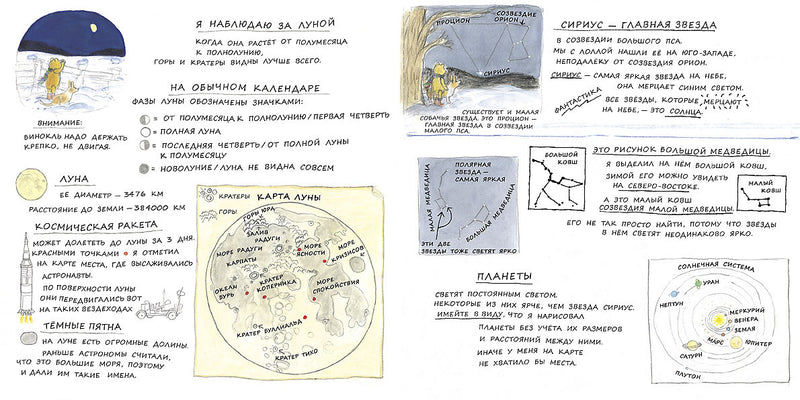 Я НАБЛЮДАЮ ЗА ЛУНОЙ
КОГДА ОНА РАСТЁТ ОТ ПОЛУМЕСЯЦА
К ПОЛНОЛУНИЮ,
ГОРЫ И КРАТЕРЫ ВИДНЫ ЛУЧШЕ ВСЕГО.
НА ОБЫЧНОМ КАЛЕНДАРЕ
ФАЗЫ ЛУНЫ ОБОЗНАЧЕНЫ ЗНАЧКАМИ:
= ОТ ПОЛУМЕСЯЦА К ПОЛНОЛУНИЮ/ПЕРВАЯ ЧЕТВЕРТЬ
= ПОЛНАЯ ЛУНА
= ПОСЛЕДНЯЯ ЧЕТВЕРТЬ/ОТ ПОЛНОЙ ЛУНЫ
К ПОЛУМЕСЯЦУ
= НОВОЛУНИЕ/ЛУНА НЕ ВИДНА СОВСЕМ
ВНИМАНИЕ:
БИНОКЛЬ НАДО ДЕРЖАТЬ
КРЕПКО, НЕ ДВИГАЯ.
ЛУНА
ЕЁ ДИАМЕТР – 3476 КМ
РАССТОЯНИЕ ДО ЗЕМЛИ – 384000 КМ
КОСМИЧЕСКАЯ РАКЕТА
МОЖЕТ ДОЛЕТЕТЬ ДО ЛУНЫ ЗА 3 ДНЯ.
КРАСНЫМИ ТОЧКАМИ • Я ОТМЕТИЛ
НА КАРТЕ МЕСТА, ГДЕ ВЫСАЖИВАЛИСЬ
АСТРОНАВТЫ.
ПО ПОВЕРХНОСТИ ЛУНЫ
ОНИ ПЕРЕДВИГАЛИСЬ ВОТ
НА ТАКИХ ВЕЗДЕХОДАХ
ТЁМНЫЕ ПЯТНА
НА ЛУНЕ ЕСТЬ ОГРОМНЫЕ ДОЛИНЫ.
РАНЬШЕ АСТРОНОМЫ СЧИТАЛИ,
ЧТО ЭТО БОЛЬШИЕ МОРЯ, ПОЭТОМУ
И ДАЛИ ИМ ТАКИЕ ИМЕНА.
КРАТЕРЫ
КАРТА ЛУНЫ
ГОРЫ
ГОРЫ ЮРА
ЗАЛИВ
РАДУГИ
МОРЕ РАДУГИ
МОРЕ
ЯСНОСТИ
МОРЕ
КРИЗИСОВ
КАРПАТЫ
ОКЕАН
БУРЬ
КРАТЕР
КОПЕРНИКА
МОРЕ
СПОКОЙСТВИЯ
КРАТЕР БУЛЛИАЛЬД
КРАТЕР ТИХО
ПРОЦИОН
СОЗВЕЗДИЕ
ОРИОН
СИРИУС
СУЩЕСТВУЕТ И МАЛАЯ
СОБАЧЬЯ ЗВЕЗДА. ЭТО ПРОЦИОН –
ГЛАВНАЯ ЗВЕЗДА В СОЗВЕЗДИИ
МАЛОГО ПСА.
СИРИУС – ГЛАВНАЯ ЗВЕЗДА
В СОЗВЕЗДИИ БОЛЬШОГО ПСА.
МЫ С ЛОЛЛОЙ НАШЛИ ЕЁ НА ЮГО-ЗАПАДЕ,
НЕПОДАЛЁКУ ОТ СОЗВЕЗДИЯ ОРИОН.
СИРИУС – САМАЯ ЯРКАЯ ЗВЕЗДА НА НЕБЕ,
ОНА МЕРЦАЕТ СИНИМ СВЕТОМ.
ФАНТАСТИКА
ВСЕ ЗВЕЗДЫ, КОТОРЫЕ МЕРЦАЮТ
НА НЕБЕ, – ЭТО СОЛНЦА.
МАЛАЯ МЕДВЕДИЦА
ПОЛЯРНАЯ
ЗВЕЗДА –
САМАЯ ЯРКАЯ
БОЛЬШАЯ МЕДВЕДИЦА
ЭТИ ДВЕ
ЗВЕЗДЫ ТОЖЕ СВЕТЯТ ЯРКО
БОЛЬШОЙ
КОВШ
ЭТО РИСУНОК БОЛЬШОЙ МЕДВЕДИЦЫ.
Я ВЫДЕЛИЛ НА НЁМ БОЛЬШОЙ КОВШ.
ЗИМОЙ ЕГО МОЖНО УВИДЕТЬ
НА СЕВЕРО-ВОСТОКЕ.
А ЭТО МАЛЫЙ КОВШ
СОЗВЕЗДИЯ МАЛОЙ МЕДВЕДИЦЫ.
МАЛЫЙ
КОВШ
ЕГО НЕ ТАК ПРОСТО НАЙТИ, ПОТОМУ ЧТО ЗВЕЗДЫ
В НЕМ СВЕТЯТ НЕОДИНАКОВО ЯРКО.
ПЛАНЕТЫ
СВЕТЯТ ПОСТОЯННЫМ СВЕТОМ.
НЕКОТОРЫЕ ИЗ НИХ ЯРЧЕ, ЧЕМ ЗВЕЗДА СИРИУС.
ИМЕЙТЕ В ВИДУ, ЧТО Я НАРИСОВАЛ
ПЛАНЕТЫ БЕЗ УЧЕТА ИХ РАЗМЕРОВ
И РАССТОЯНИЙ МЕЖДУ НИМИ.
ИНАЧЕ У МЕНЯ НА КАРТЕ
НЕ ХВАТИЛО БЫ МЕСТА.
СОЛНЕЧНАЯ СИСТЕМА
УРАН
НЕПТУН
МЕРКУРИЙ
ВЕНЕРА
ЗЕМЛЯ
МАРС
ЮПИТЕР
САТУРН
ПЛУТОН